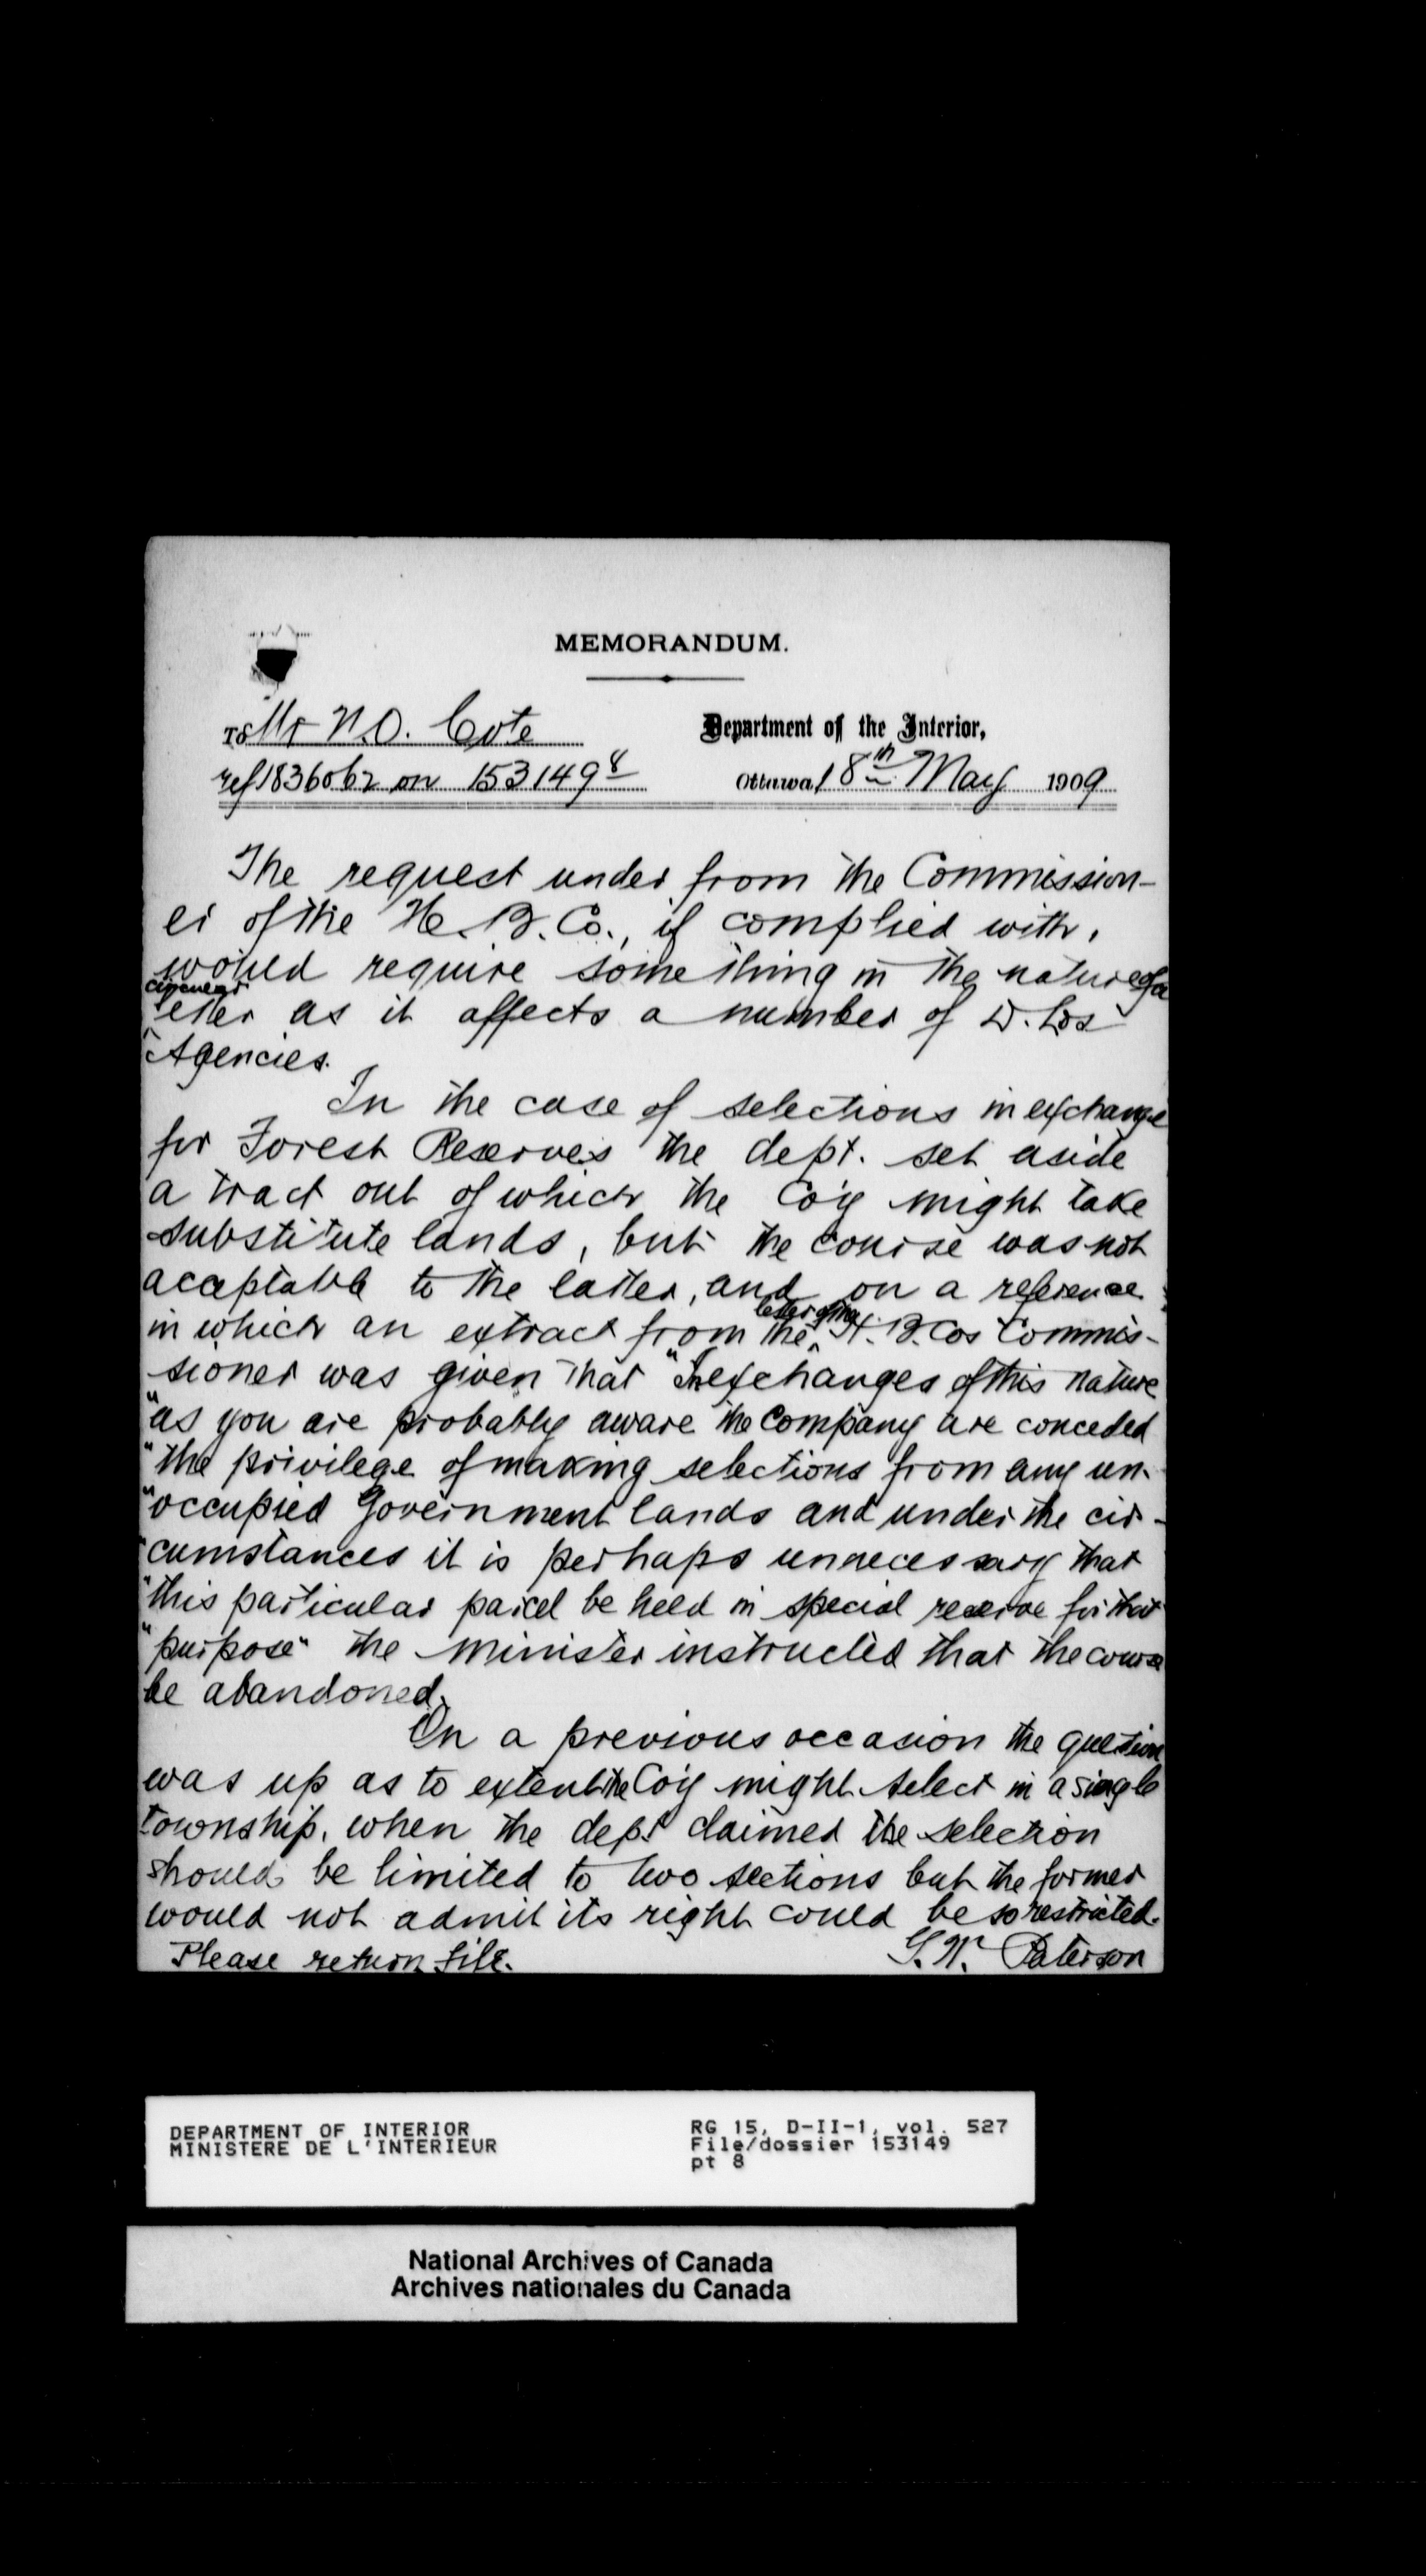 MEMORANDUM.
To Mr N.O. Cote
Department of the Interior,
ref 1836062 on 153149 8
Ottawa, 18th May 1909
The request under from the Commission-
er of the H.B.Co., if complied with,
would require something in the nature of a
circular
letter as it affects a number of D. Lds
Agencies.
In the case of selections in exchange
for Forest Reserves the dept. set aside
a tract out of which the Co'y might take
substitute lands, but the course was not
acceptable to the latter, and on a reference
letter of the
in which an extract from the H.B.Cos Commis-
sioner was given that "In exchanges of this nature
"as you are probably aware the Company are conceded
"the privilege of making selections from any un-
"occupied Government lands and under the cir-
"cumstances it is perhaps unnecessary that
"this particular parcel be held in special reserve for that
"purpose" the Minister instructed that the course
be abandoned.
On a previous occasion the question
was up as to extent the Co'y might select in a single
township, when the dept claimed the selection
should be limited to two sections but the former
would not admit its right could be so restricted.
Please return file.
G.W. Paterson
DEPARTMENT OF INTERIOR
MINISTERE DE L'INTERIEUR
RG 15, D-II-1, vol. 527
File/dossier 153149
pt 8
National Archives of Canada
Archives nationales du Canada